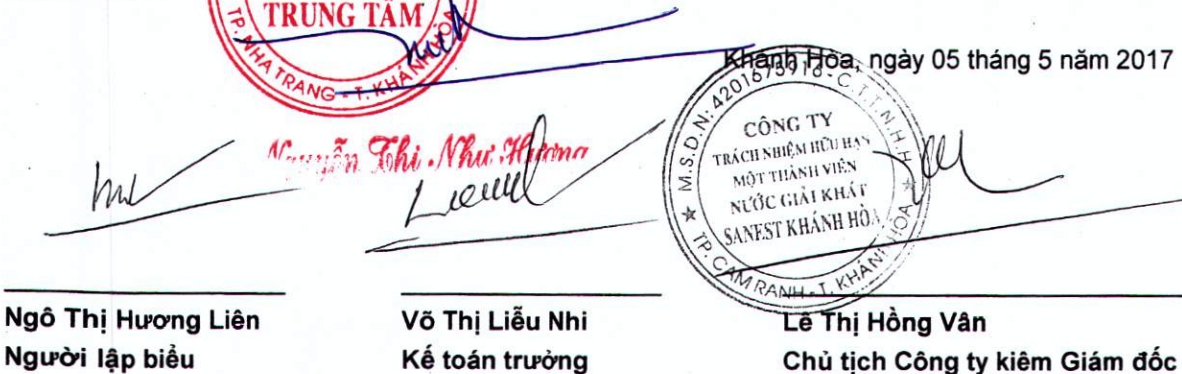 TRUNG TÂM
TP. NHA TRANG - T. KHÁNH HÒA
Khánh Hòa, ngày 05 tháng 5 năm 2017
Nguyễn Thị Như Hương
M.S.D.N: 4201675916 - C.T.T.N.H.H
CÔNG TY
TRÁCH NHIỆM HỮU HẠN
MỘT THÀNH VIÊN
NƯỚC GIẢI KHÁT
SANEST KHÁNH HÒA
TP. CAM RANH - T. KHÁNH HÒA
Ngô Thị Hương Liên
Người lập biểu
Võ Thị Liễu Nhi
Kế toán trưởng
Lê Thị Hồng Vân
Chủ tịch Công ty kiêm Giám đốc